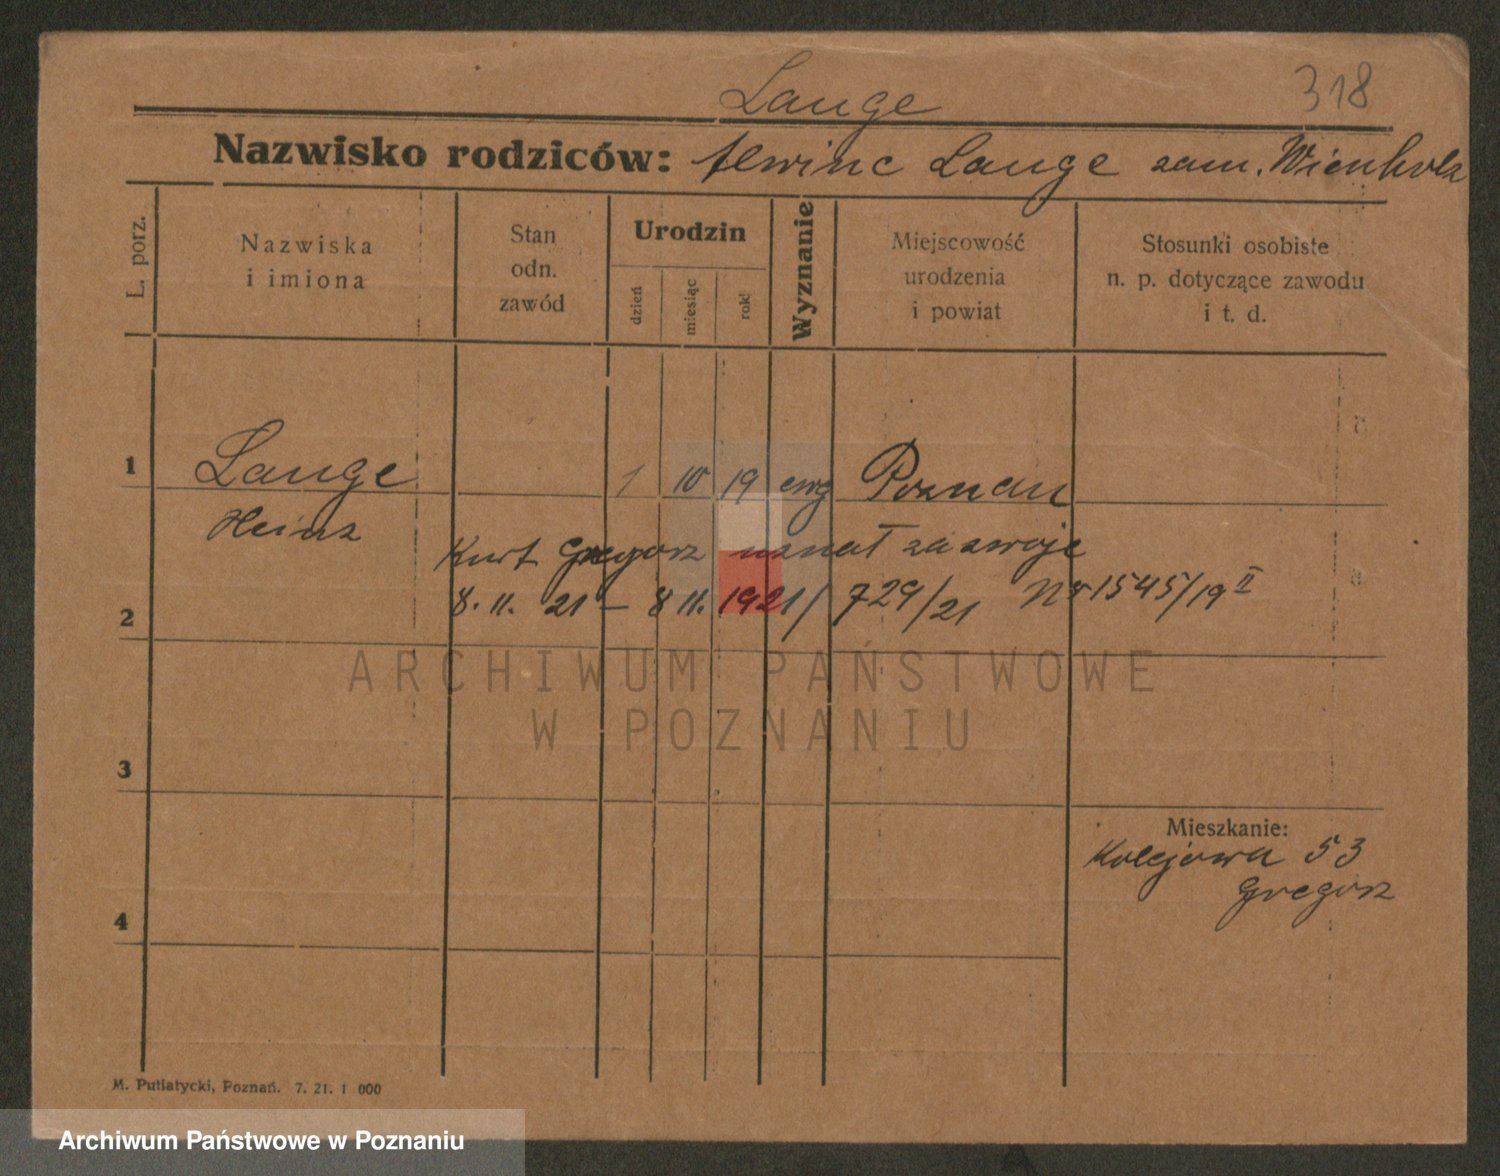 Lange
318
Nazwisko rodziców: Alwine Lange zam. Wienholz
L. porz.
Nazwiska
i imiona
Stan
odn.
zawód
Urodzin
dzień
miesiąc
rok
Wyznanie
Miejscowość
urodzenia
i powiat
Stosunki osobiste
n. p. dotyczące zawodu
i t. d.
1
Lange 1 10 19 ewg Poznań
Heinz
Kurt Gregorz uznał za swoje
2
8. 11. 21 – 8 11. 1921/ 729/21 Nr 1545/19 II
3
Mieszkanie:
Kolejowa 53
Gregorz
4
M. Putiatycki, Poznań. 7. 21. 1 000
ARCHIWUM PAŃSTWOWE
W POZNANIU
Archiwum Państwowe w Poznaniu